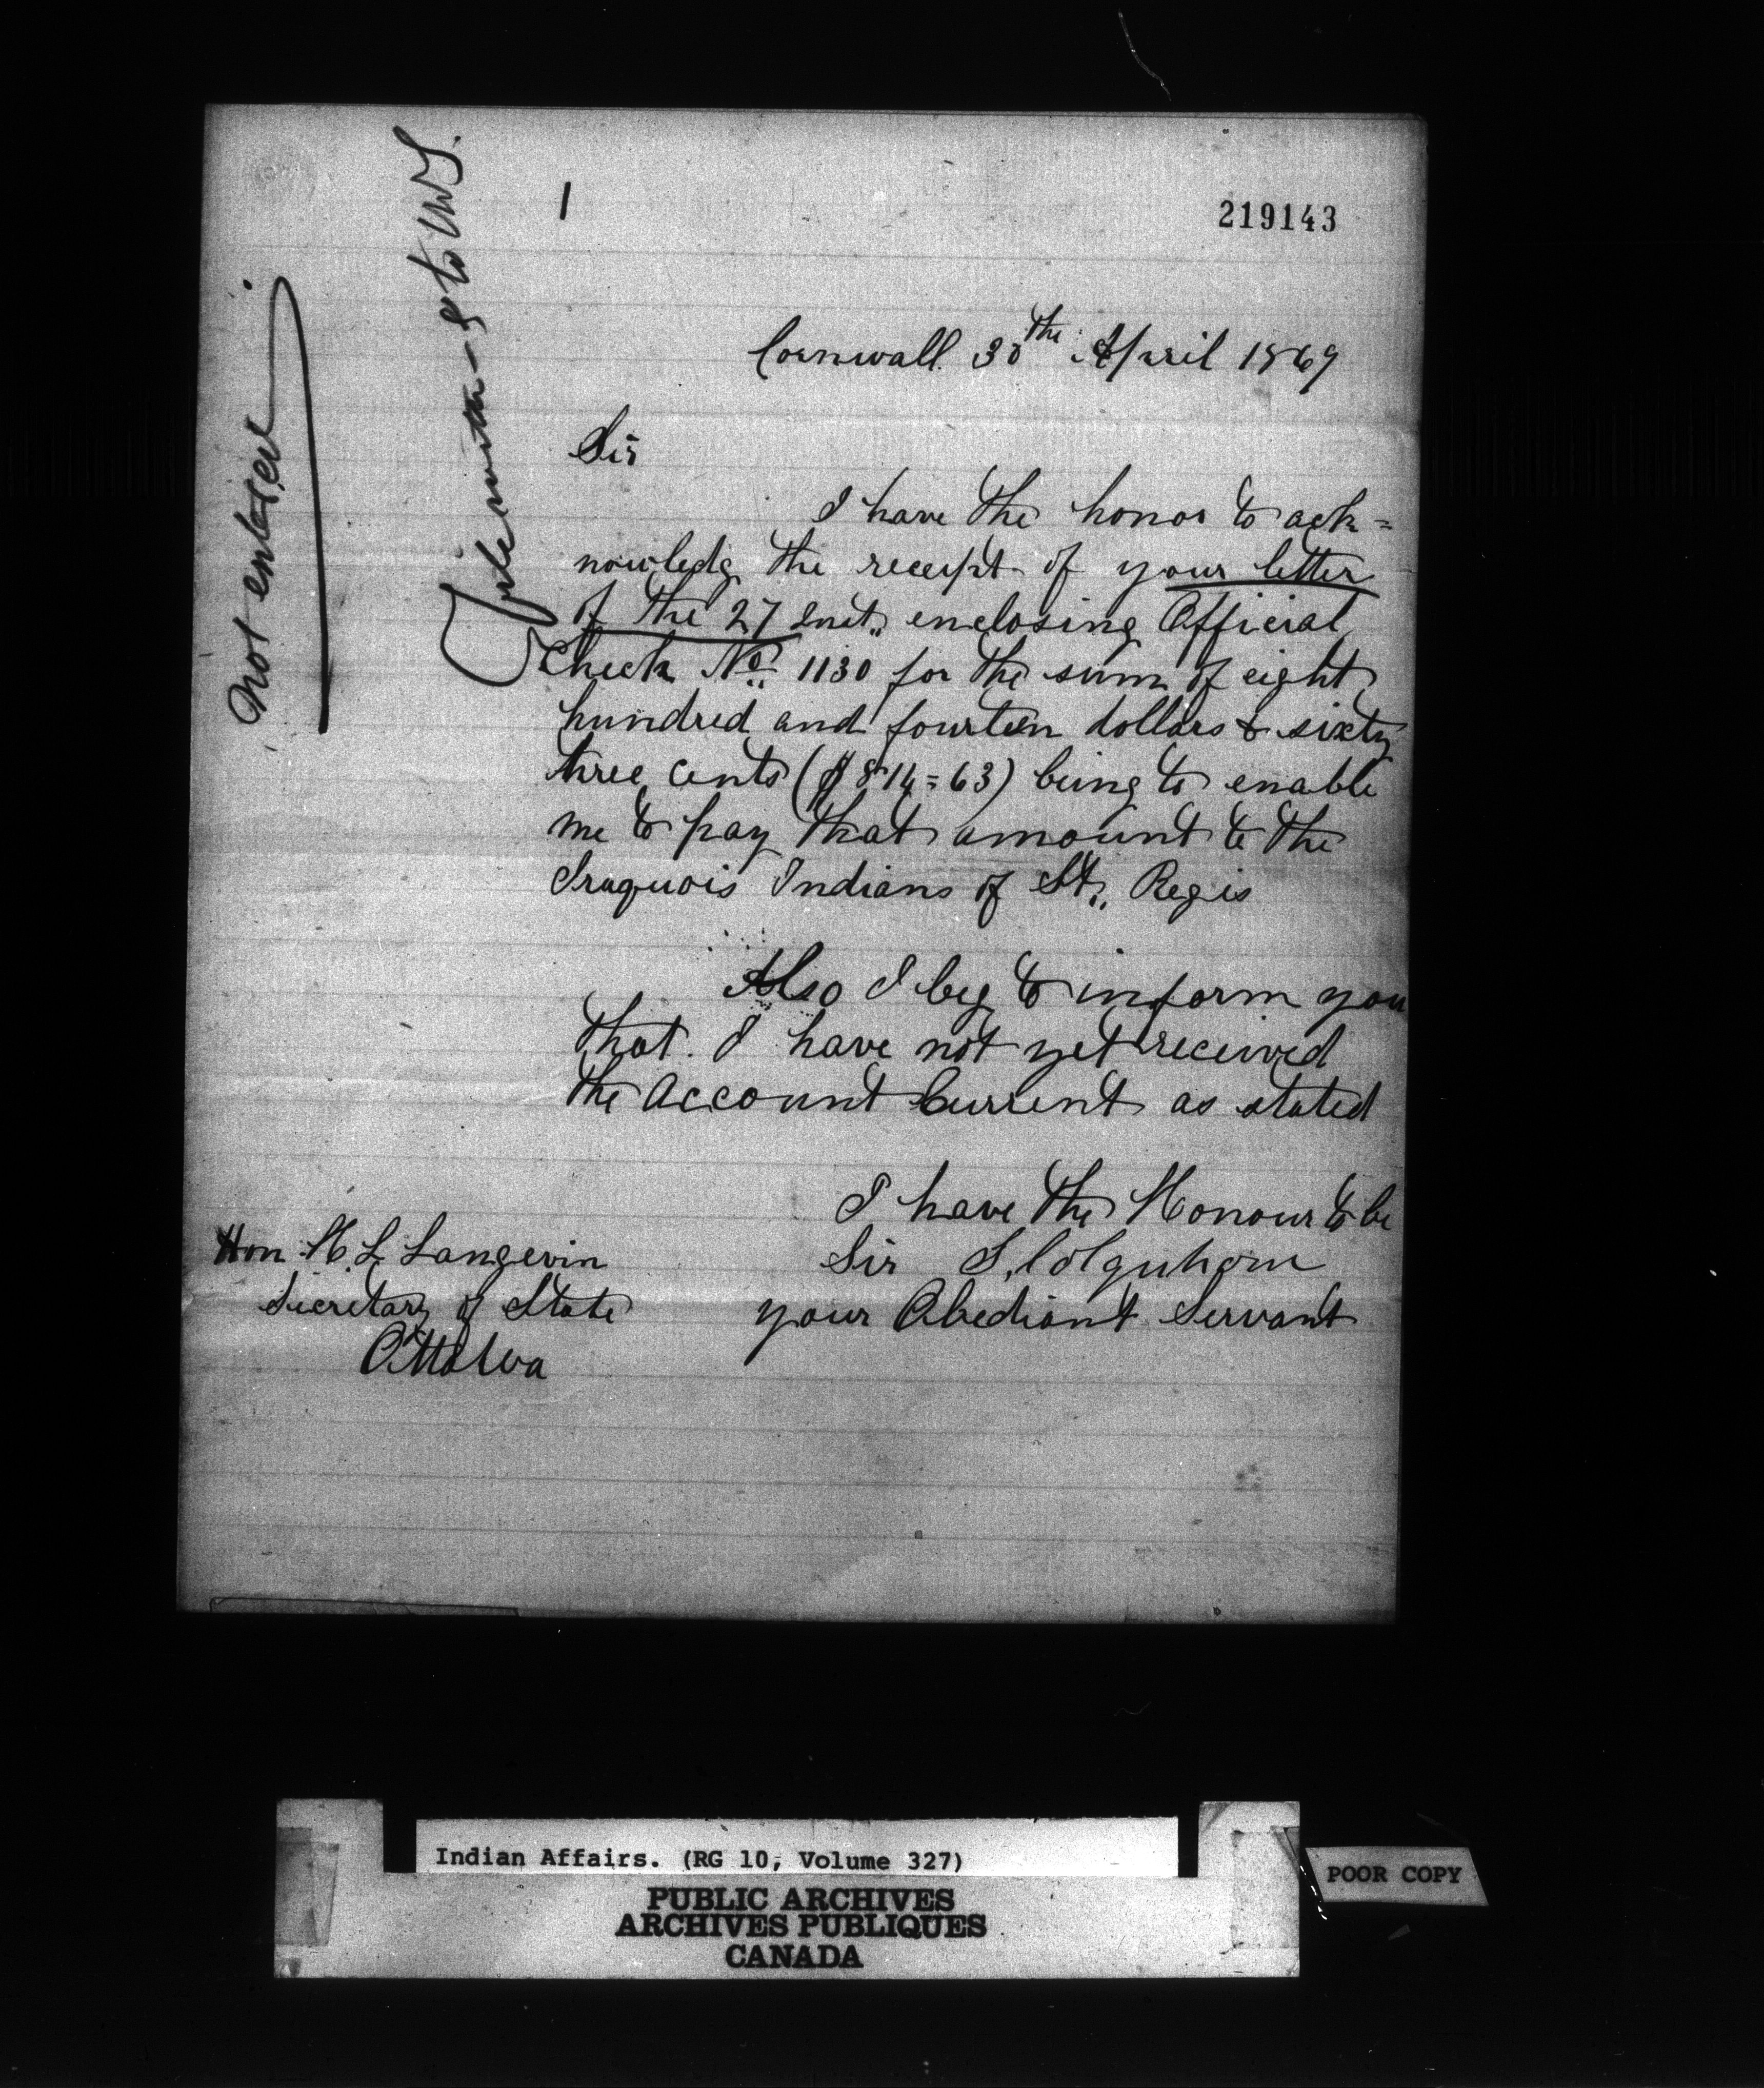 1
219143
Cornwall. 30th April 1869
Sir
I have the honor to ack=
nowledg the receipt of your letter
of the 27 Inst,, enclosing Official
Check No. 1130 for the sum of eight
hundred and fourteen dollars & sixty
three Cents ($814=63) being to enable
me to pay that amount to the
Iraquois Indians of St,, Regis
Also I beg to inform you
that. I have not yet received
the Account Current as stated
I have the Honour to be
Sir S. Colquhoun
your Obediant Servant
Hon H. L Langevin
Secretary of State
Ottawa
Not entered
to
Indian Affairs. (RG 10, Volume 327)
PUBLIC ARCHIVES
ARCHIVES PUBLIQUES
CANADA
POOR COPY